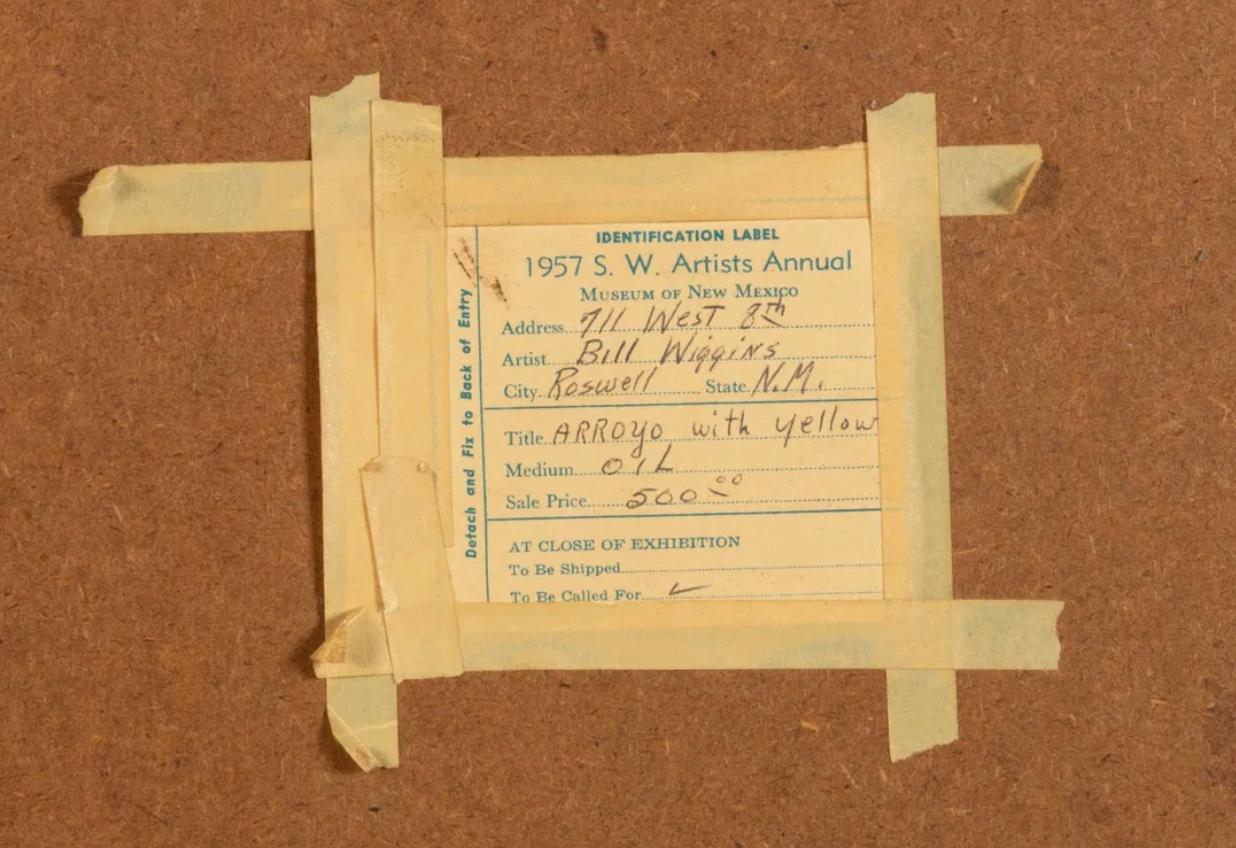 IDENTIFICATION LABEL
1957 S. W. Artists Annual
MUSEUM OF NEW MEXICO
Address 711 West 8th
Artist Bill Wiggins
City Roswell State N.M.
Title ARROYO with yellow
Medium OIL
Sale Price 500.00
AT CLOSE OF EXHIBITION
To Be Shipped
To Be Called For ✓
Detach and Fix to Back of Entry